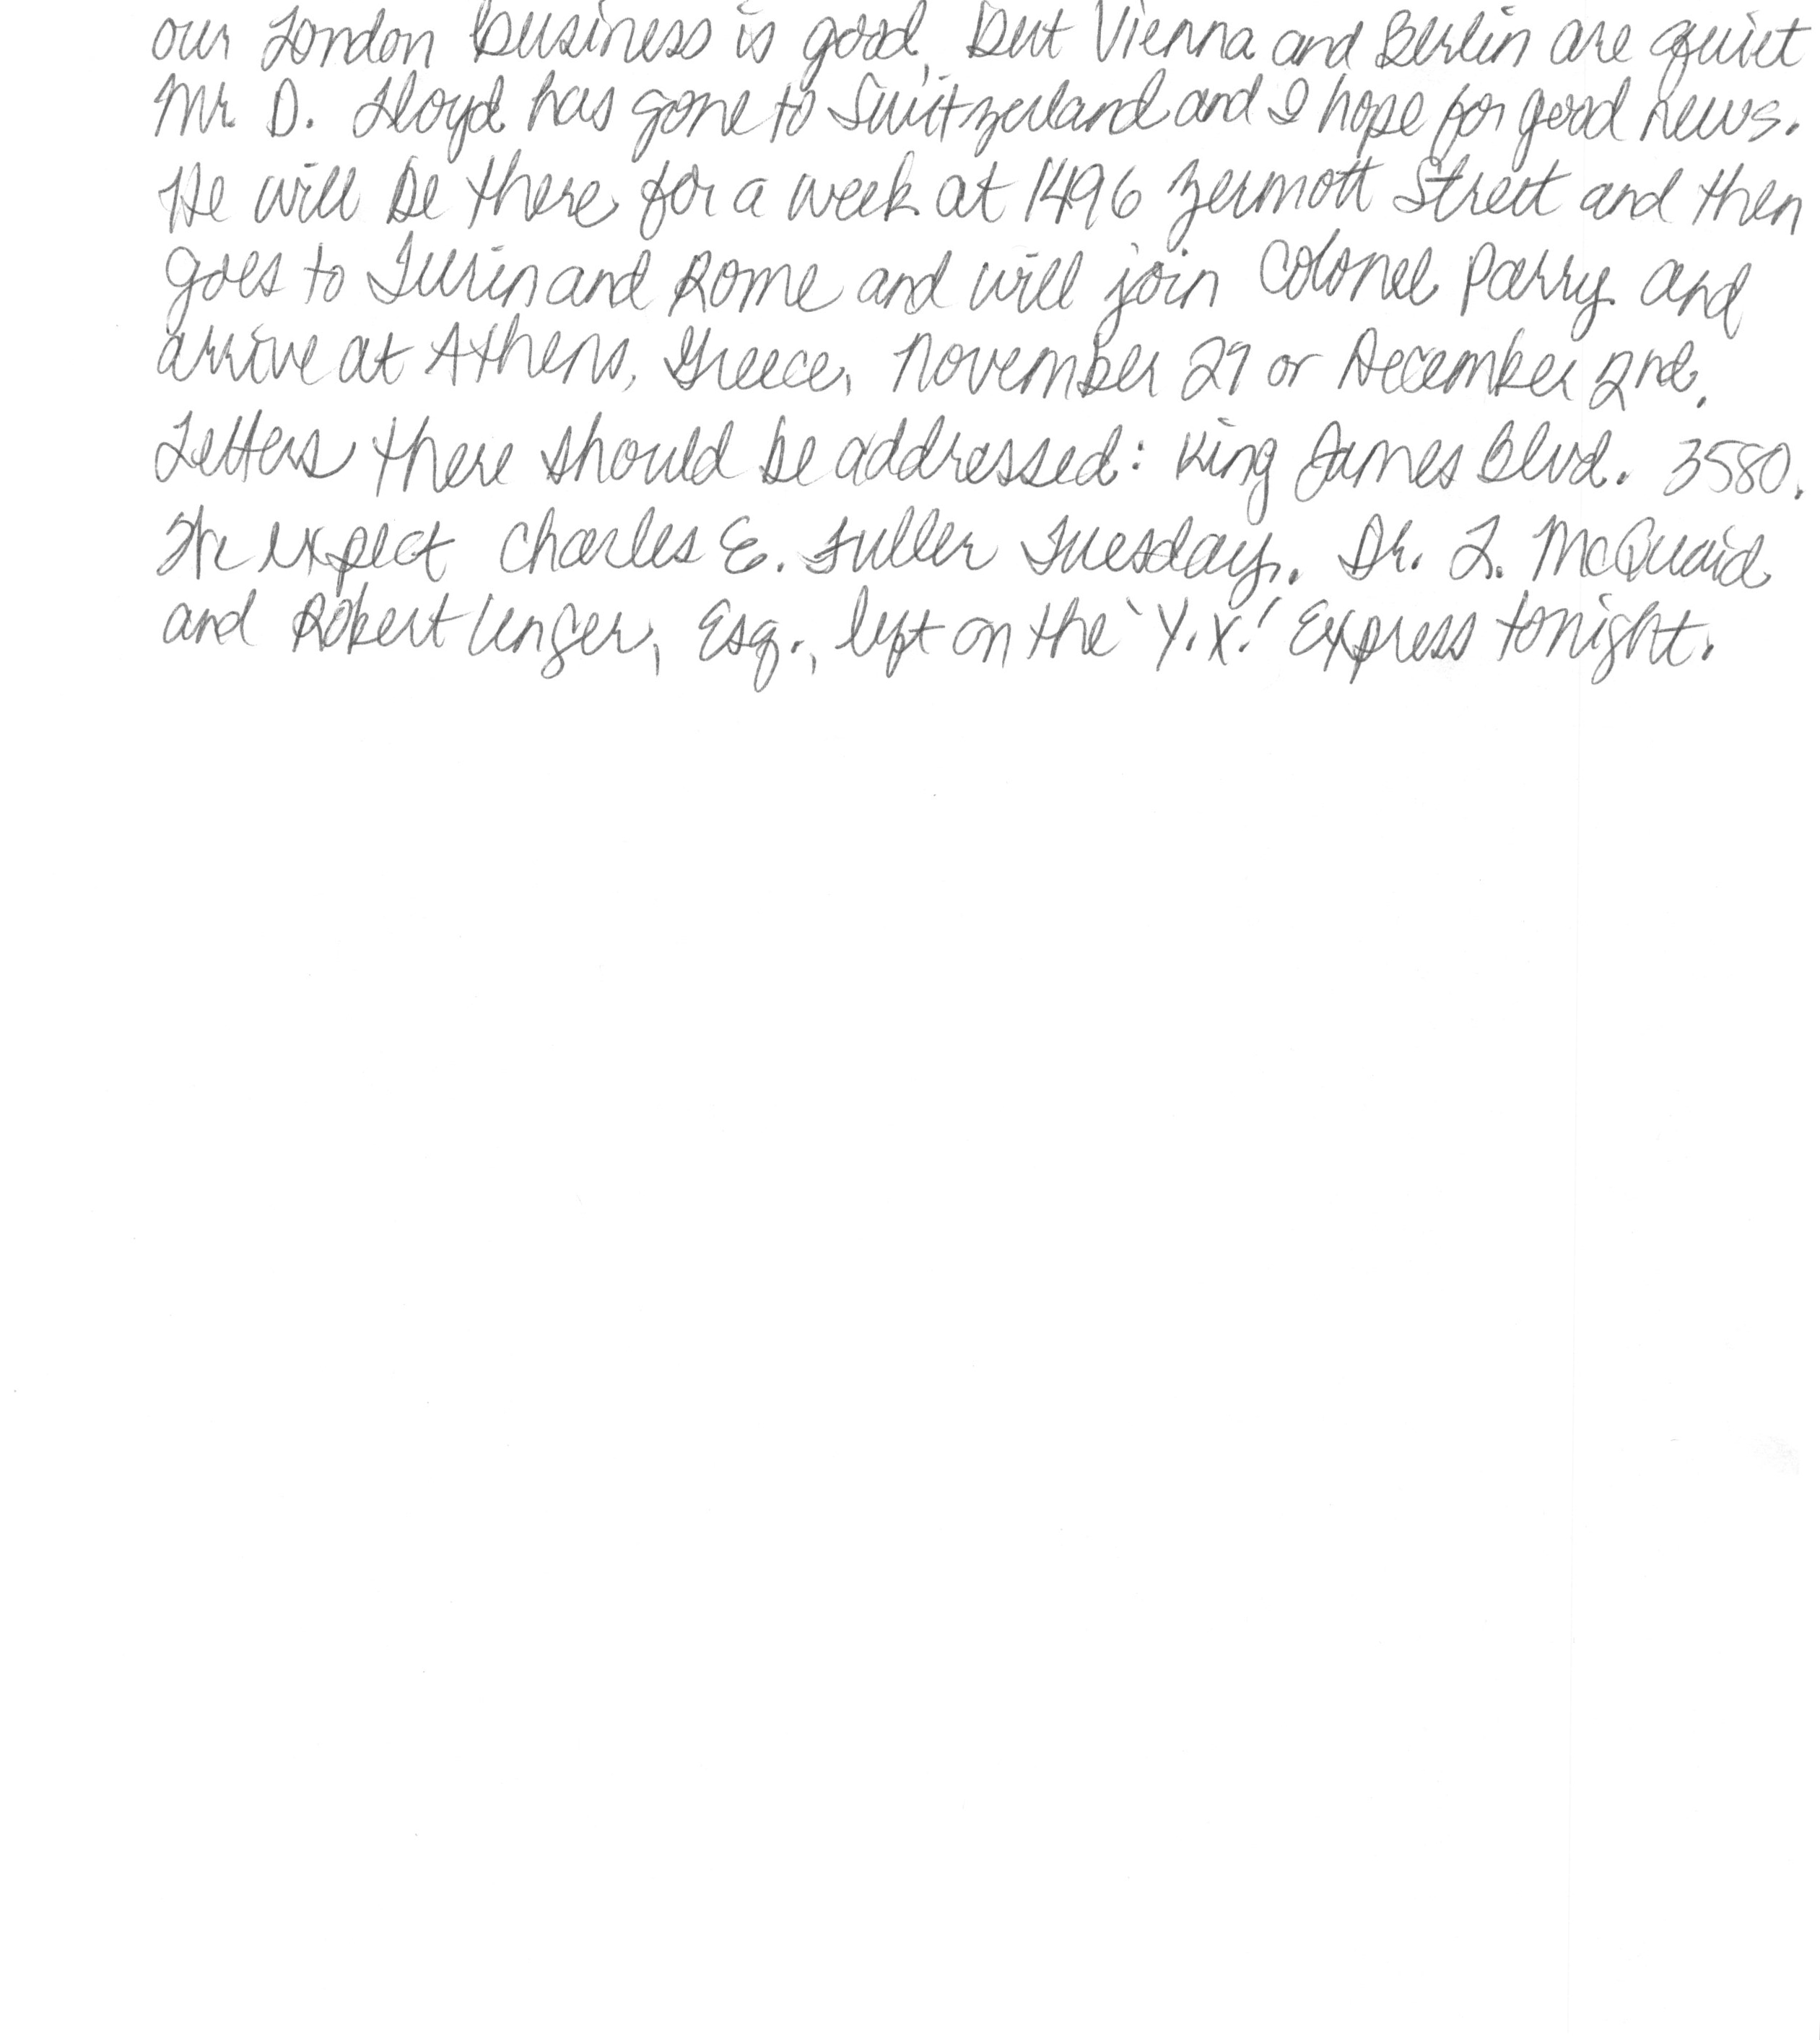 our London business is good, but Vienna and Berlin are quiet
Mr. D. Lloyd has gone to Switzerland and I hope for good news.
He will be there for a week at 1496 Zermott Street and then
goes to Turin and Rome and will join Colonel Parry and
arrive at Athens, Greece, November 27 or December 2nd.
Letters there should be addressed: King James Blvd. 3580.
We expect Charles E. Fuller Tuesday. Dr. L. McQuaid
and Robert Unger, Esq., left on the 'Y.X.' Express tonight.